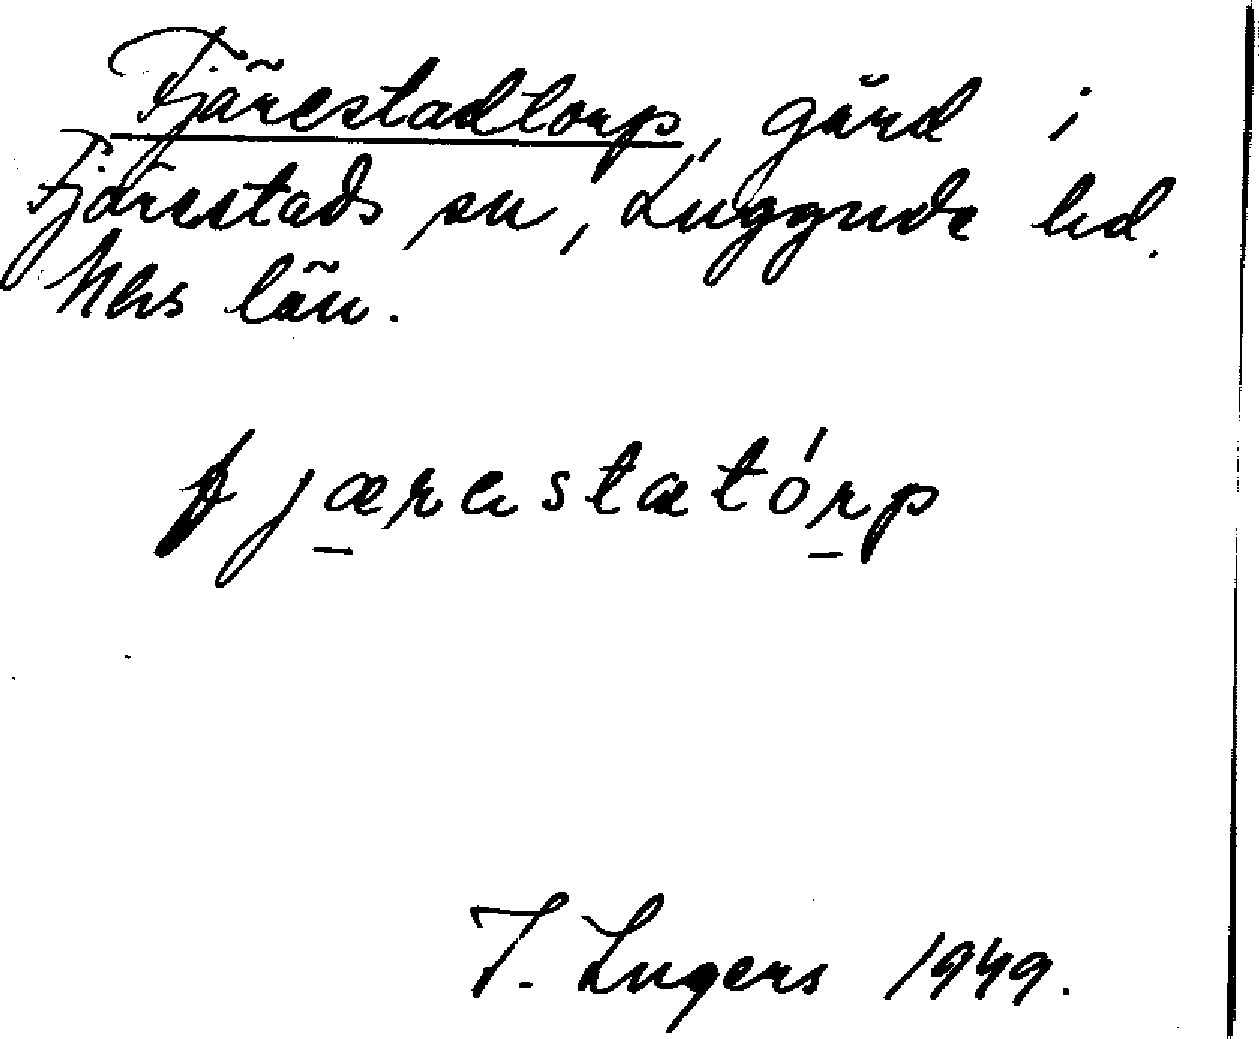 Fjärestadtorp, gård i
Fjärestads sn, Luggude hd.
Mhs län.
fjærastatórp
I. Ingers 1949.